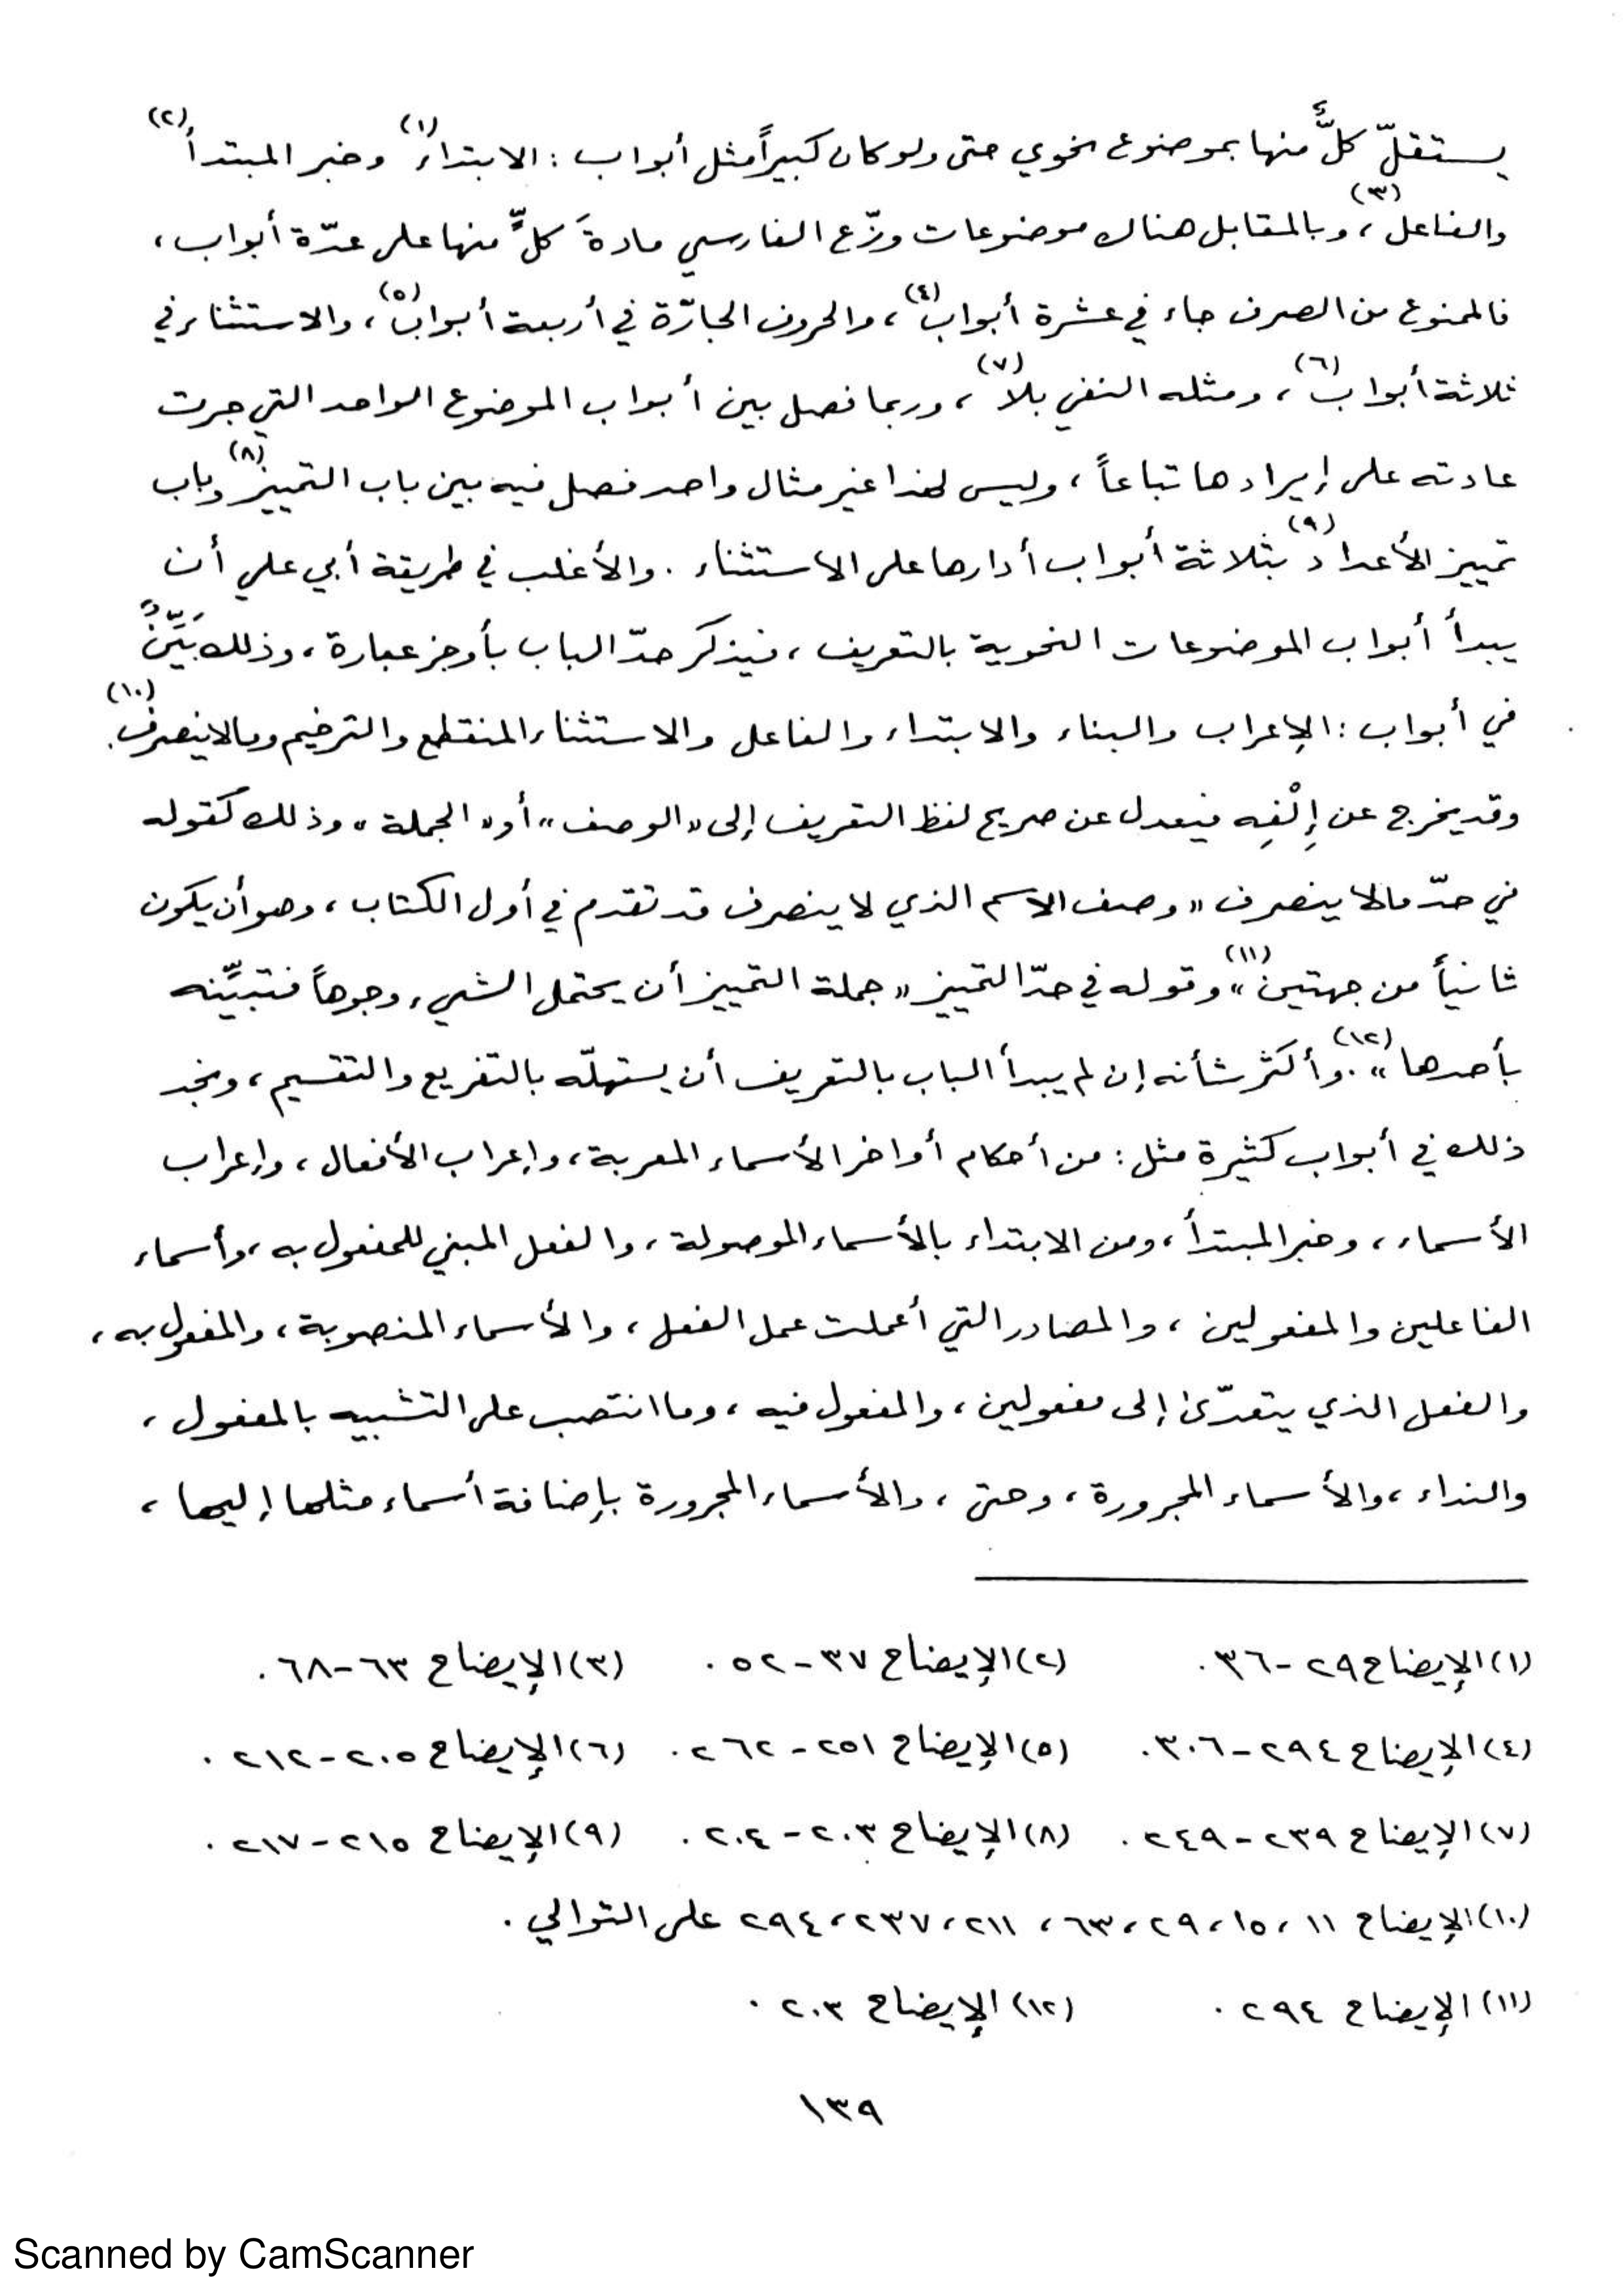 يستقلّ كلٌّ منها بموضوع نحوي حتى ولو كان كبيراً مثل أبواب : الابتداء(١) وخبر المبتدأ(٢)
والفاعل(٣)، وبالمقابل هناك موضوعات وزّع الفارسي مادةَ كلٍّ منها على عدّة أبواب،
فالممنوع من الصرف جاء في عشرة أبواب(٤)، والحروف الجارّة في أربعة أبواب(٥)، والاستثناء في
ثلاثة أبواب(٦)، ومثله النفي بلا(٧)، وربما فصل بين أبواب الموضوع الواحد التي جرت
عادته على إيرادها تباعاً، وليس لهذا غير مثال واحد فصل فيه بين باب التمييز(٨) وباب
تمييز الأعداد(٩) بثلاثة أبواب أدارها على الاستثناء . والأغلب في طريقة أبي علي أن
يبدأ أبواب الموضوعات النحوية بالتعريف، فيذكر حدّ الباب بأوجز عبارة، وذلك بَيِّنٌ
في أبواب : الإعراب والبناء والابتداء والفاعل والاستثناء المنقطع والترخيم ومالا ينصرف(١٠).
وقد يخرج عن إِلْفِه فيعدل عن صريح لفظ التعريف إلى «الوصف» أو «الجملة» وذلك كقوله
في حدّ مالا ينصرف «وصف الاسم الذي لا ينصرف قد تقدم في أول الكتاب، وهو أن يكون
ثانياً من جهتين(١١)» وقوله في حدّ التمييز «جملة التمييز أن يحتمل الشيء وجوهاً فتبيِّنه
بأحدها(١٢)». وأكثر شأنه إن لم يبدأ الباب بالتعريف أن يستهلّه بالتفريع والتقسيم، ونجد
ذلك في أبواب كثيرة مثل : من أحكام أواخر الأسماء المعربة، وإعراب الأفعال، وإعراب
الأسماء، وخبر المبتدأ، ومن الابتداء بالأسماء الموصولة، والفعل المبني للمفعول به، وأسماء
الفاعلين والمفعولين، والمصادر التي أعملت عمل الفعل، والأسماء المنصوبة، والمفعول به،
والفعل الذي يتعدّى إلى مفعولين، والمفعول فيه، وما انتصب على التشبيه بالمفعول،
والنداء، والأسماء المجرورة، وحتى، والأسماء المجرورة بإضافة أسماء مثلها إليها،
(١) الإيضاح ٢٩-٣٦. (٢) الإيضاح ٣٧-٥٢. (٣) الإيضاح ٦٣-٦٨.
(٤) الإيضاح ٢٩٤-٣٠٦. (٥) الإيضاح ٢٥١-٢٦٢. (٦) الإيضاح ٢٠٥-٢١٢.
(٧) الإيضاح ٢٣٩-٢٤٩. (٨) الإيضاح ٢٠٣-٢٠٤. (٩) الإيضاح ٢١٥-٢١٧.
(١٠) الإيضاح ١١، ١٥، ٢٩، ٦٣، ٢١١، ٢٣٧، ٢٩٤ على التوالي.
(١١) الإيضاح ٢٩٤. (١٢) الإيضاح ٢٠٣.
١٣٩
Scanned by CamScanner